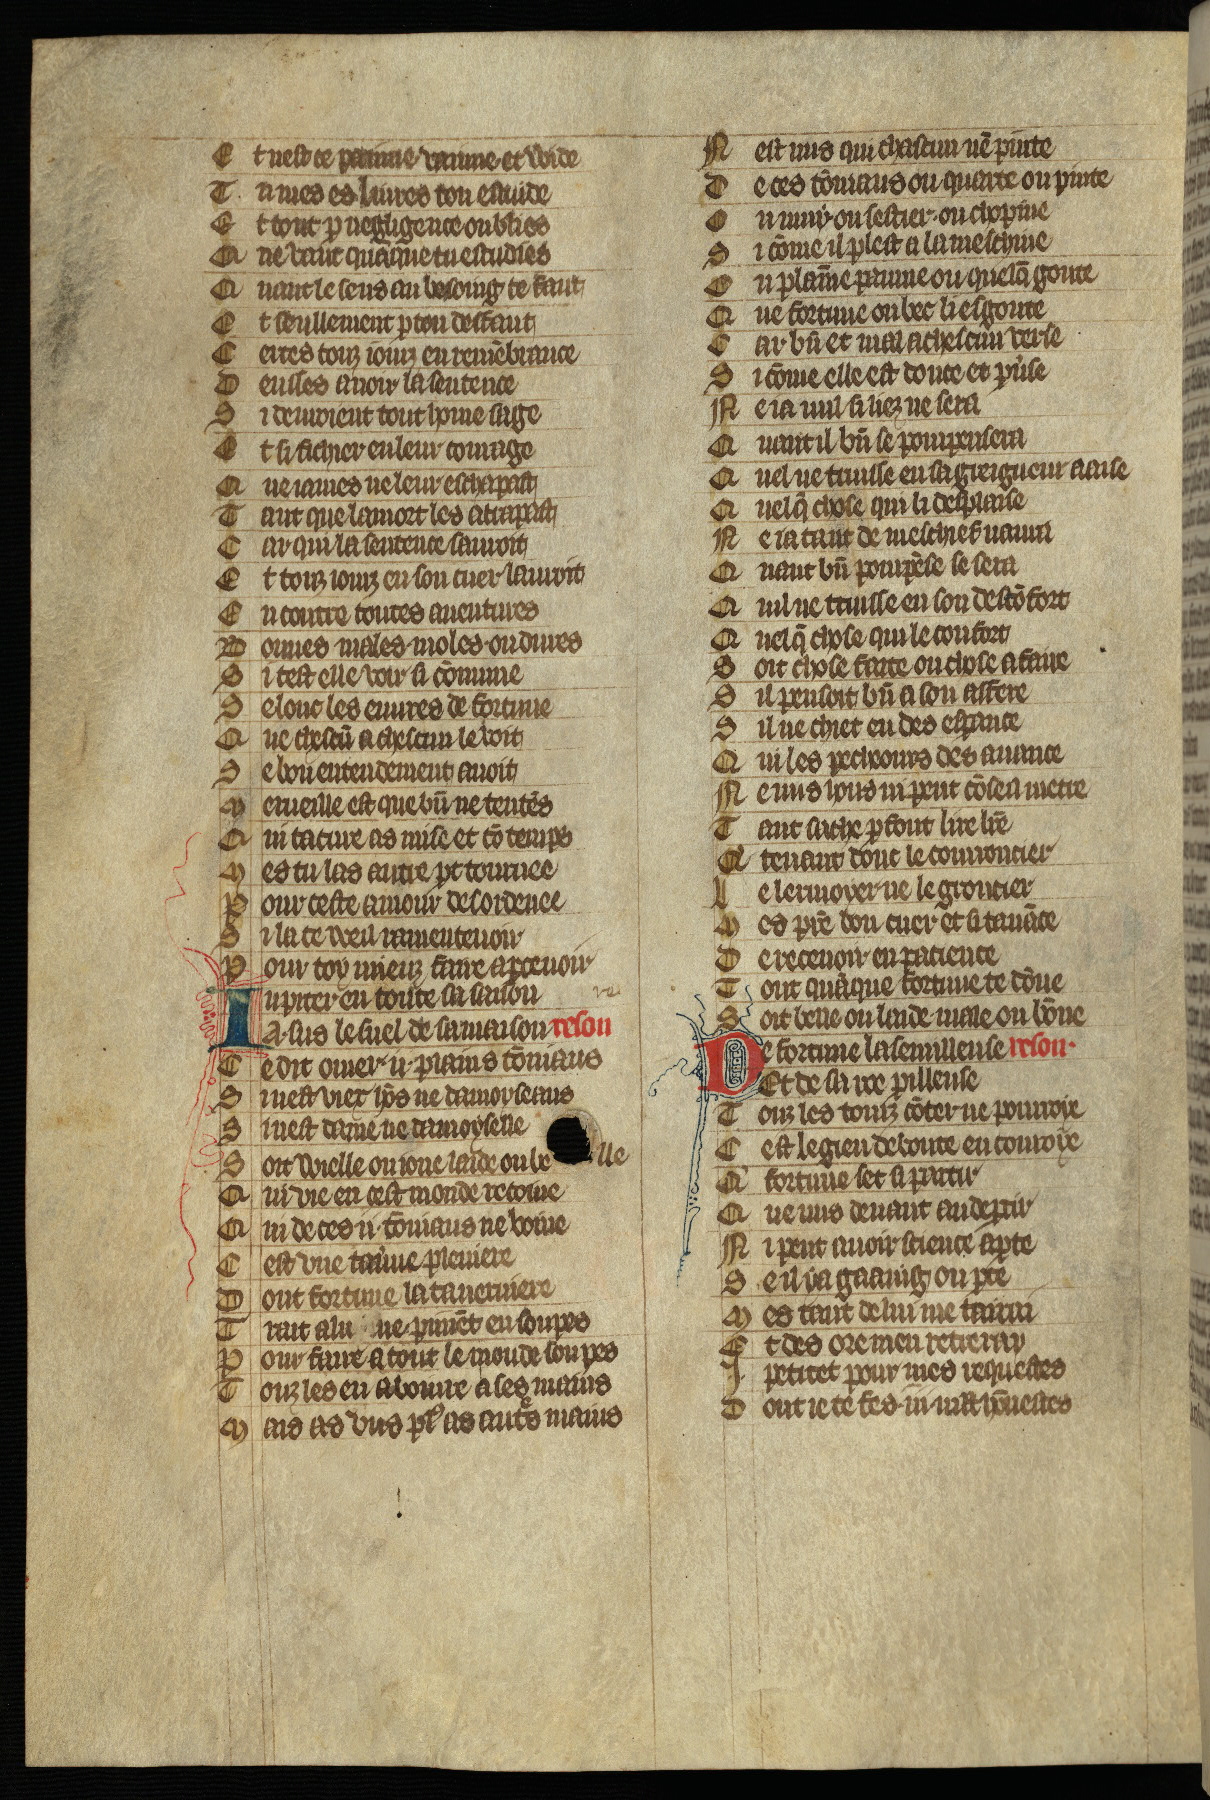 E t nest ce painne vainne et wide
T u mes es liures ton estuide
E t tout p negligence oublies
Q ne vaut quāque tu estudies
Q uant le sens au besoing te faut
E t seullement p ton deffaut
C ertes touz iourz en remēbrance
D eusses auoir la sentence
S i deuroient tout home sage
E t si fichier en leur courage
Q ue iames ne leur eschapast
T ant que la mort les atrapast
C ar qui la sentence sauroit
E t touz iourz en son cuer lauroit
E ncontre toutes auentures
B onnes males moles ou dures
S i rest elle voir si cōmune
S elonc les euures de fortune
Q ue chescū a chescun le voit
S e bon entendement auoit
M erueille est que bn̄ ne tentēs
Q ui ta cure as mise et tō temps
M es tu las autre pt tournee
P our ceste amour desordenee
S i la te weil ramenteuoir
P our toy mieuz faire apceuoir
I upiter en toute sa saison
A sus le suel de sa maison reson
C e dit omer ij plains tōniaus
S i nest viex hōs ne damoyseaus
S i nest dame ne damoyselle
S oit vielle ou ione laide ou be lle
Q ui vie en cest monde recoiue
Q ui de ces ij tōniaus ne boiue
C est vne tau'ne pleniere
D ont fortune la tauerniere
T rait alu ne piment en soupes
P our faire a tout le monde soupes
T ouz les en abonure a ses mains
M ais as vns pl' as autēs mains
N est nus qui chascun nē pinte
D e ces tōniaus ou quarte ou pinte
O u muy ou sestier ou chopine
S i cōme il plest a la meschine
O u plainne paume ou quelq̄ goute
Q ue fortune ou bec li esgoute
C ar bn̄ et mal a chescun verse
S i cōme elle est douce et p'use
N e ia nul si liez ne sera
Q uant il bn̄ se pourpensera
Q uel ne truisse en sa greigneur aaise
Q uelq̄ chose qui li desplaise
N e ia tant de meschief naura
Q uant bn̄ pourpēse se sera
Q uil ne truisse en son descōfort
Q uelq̄ chose qui le confort
S oit chose faite ou chose a faire
S il pensoit bn̄ a son affere
S il ne chiet en des espance
Q ui les pecheours des auance
N e nus hons ni peut cōseil metre
T ant sache pfont lire lrē
Q tenant dont le courroucier
L e lermoyer ne le groucier
M es prē bon cuer et si tauāce
D e receuoir en pacience
T out quāque fortune te dōne
S oit belle ou laide male ou bōne
D e fortune la semilleuse reson
Et de sa roe pilleuse
T ouz les tourz cōter ne pourroie
C est le gieu deboute en couroye
Q fortune set si partir
Q ue nus deuant au deptir
N i peut auoir science apte
S e il i a gaaing ou pte
M es tant de lui me tairai
E t des ore men retrerray
I petitet pour mes requestes
D ont ie te fes iij ml't hōnestes